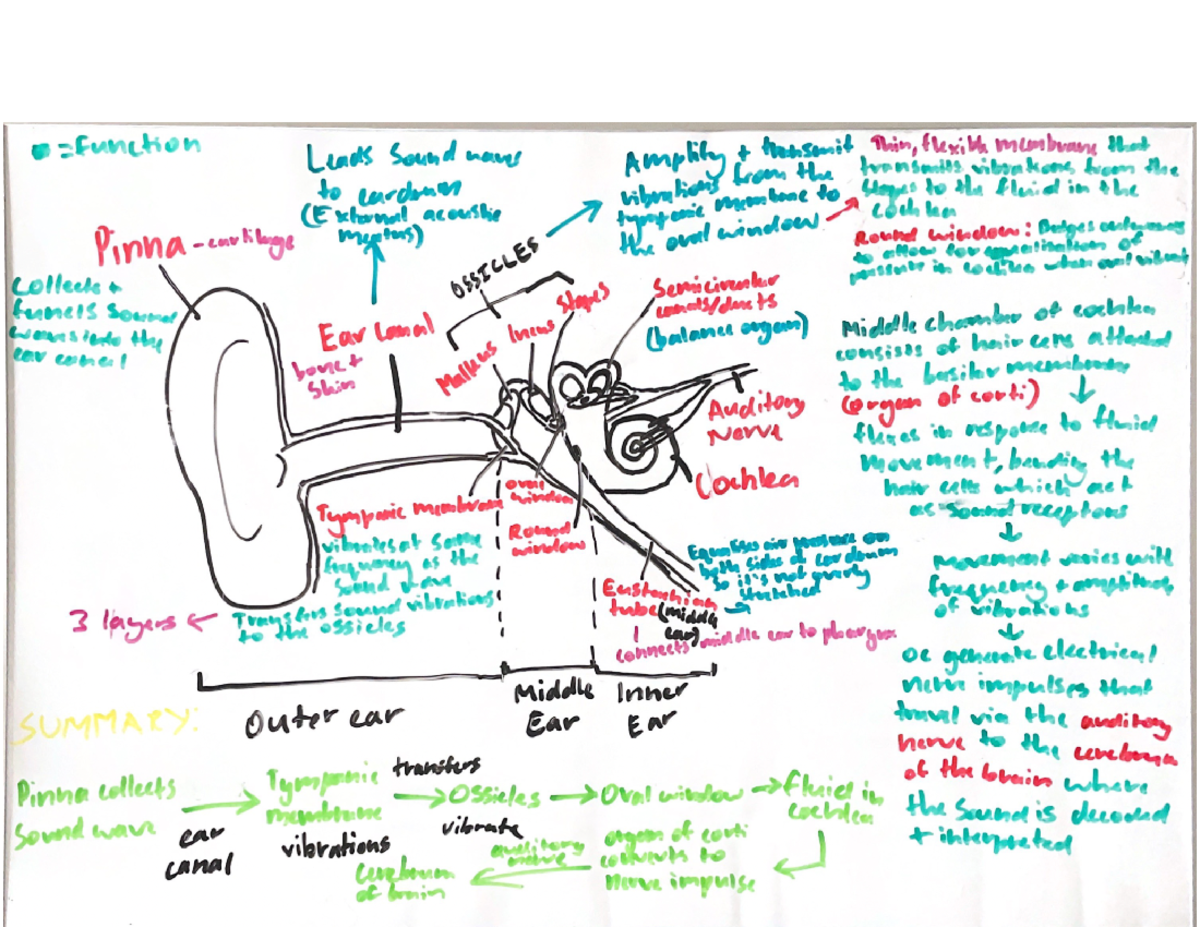 = Function
Leads sound waves
to eardrum
(External acoustic
meatus)
Amplify + transmit
vibrations from the
tympanic membrane to
the oval window
Thin, flexible membrane that
transmits vibrations from the
stapes to the fluid in the
cochlea
Round window: Bulges outwards
to allow for equalisation of
pressure in cochlea when oval vibrates
Pinna - cartilage
Collects +
funnels sound
waves into the
ear canal
OSSICLES
Malleus
Incus
Stapes
Semicircular
canals/ducts
(balance organ)
Ear Canal
bone +
skin
Auditory
Nerve
Cochlea
Middle chamber of cochlea
consists of hair cells attached
to the basilar membrane
(organ of corti)
flexes in response to fluid
movement, bending the
hair cells which act
as sound receptors
Movement varies with
frequency + amplitude
of vibrations
OC generate electrical
nerve impulses that
travel via the auditory
nerve to the cerebrum
of the brain where
the sound is decoded
+ interpreted
Tympanic membrane
vibrates at same
frequency as the
sound wave
Transfers sound vibrations
to the ossicles
3 layers
oval
window
Round
window
Eustachian
tube (middle
ear)
connects middle ear to pharynx
Equalises air pressure on
both sides of eardrum
so it's not overly
stretched
Outer ear
Middle
Ear
Inner
Ear
SUMMARY:
Pinna collects
sound wave
ear
canal
Tympanic
membrane
vibrations
transfers
Ossicles
vibrate
Oval window
fluid in
cochlea
organ of corti
converts to
Nerve impulse
auditory
nerve
cerebrum
of brain